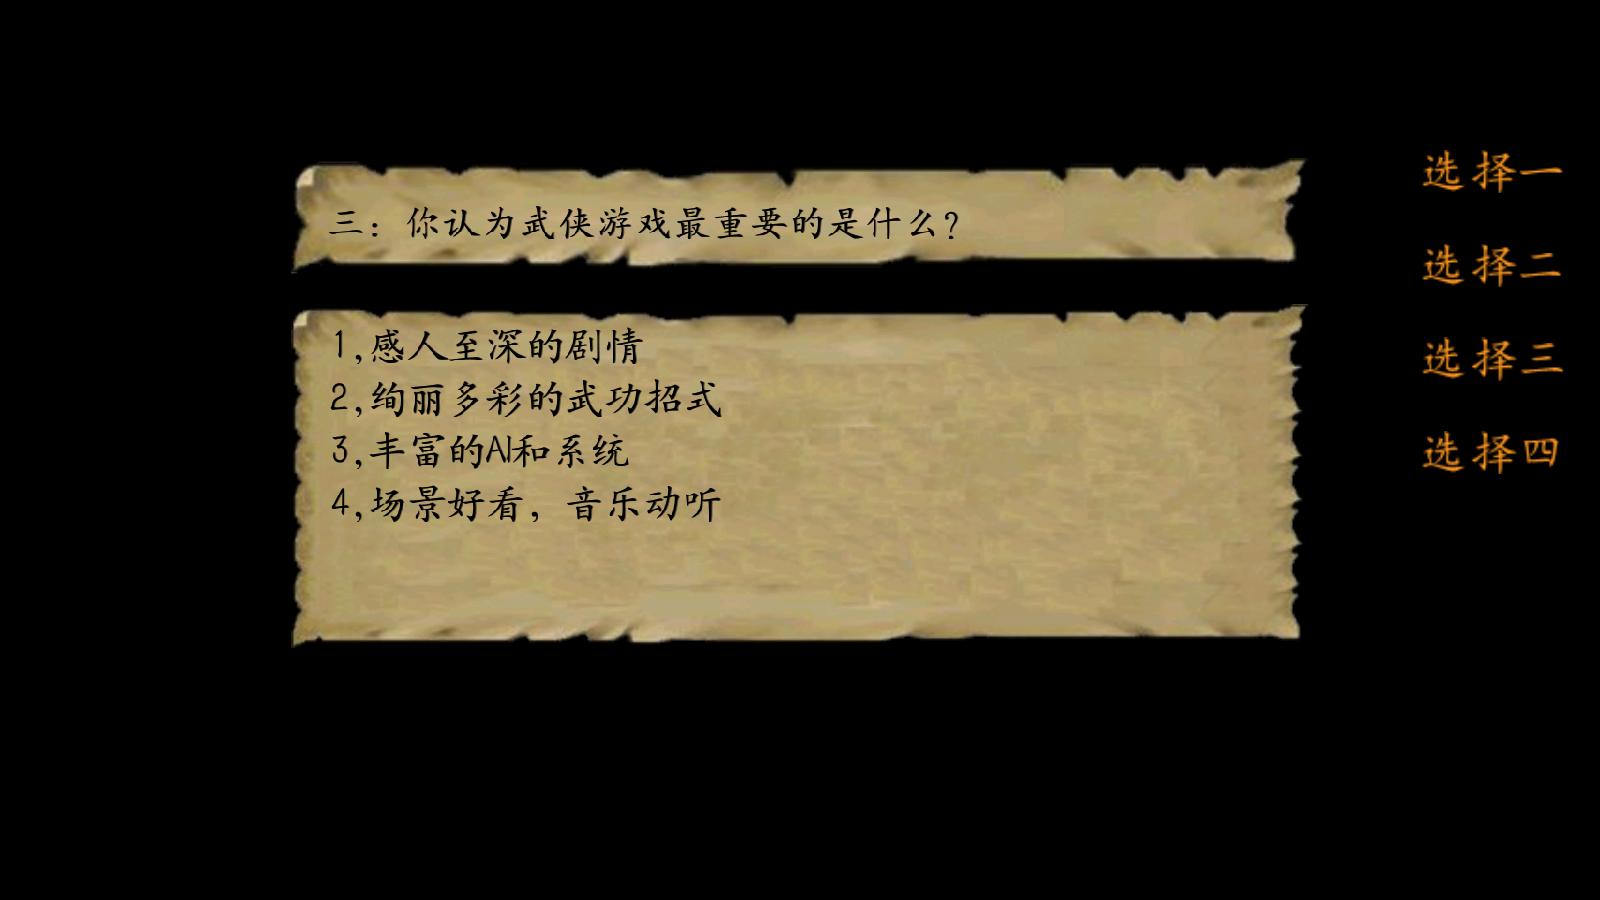 三：你认为武侠游戏最重要的是什么？
1,感人至深的剧情
2,绚丽多彩的武功招式
3,丰富的AI和系统
4,场景好看，音乐动听
选择一
选择二
选择三
选择四